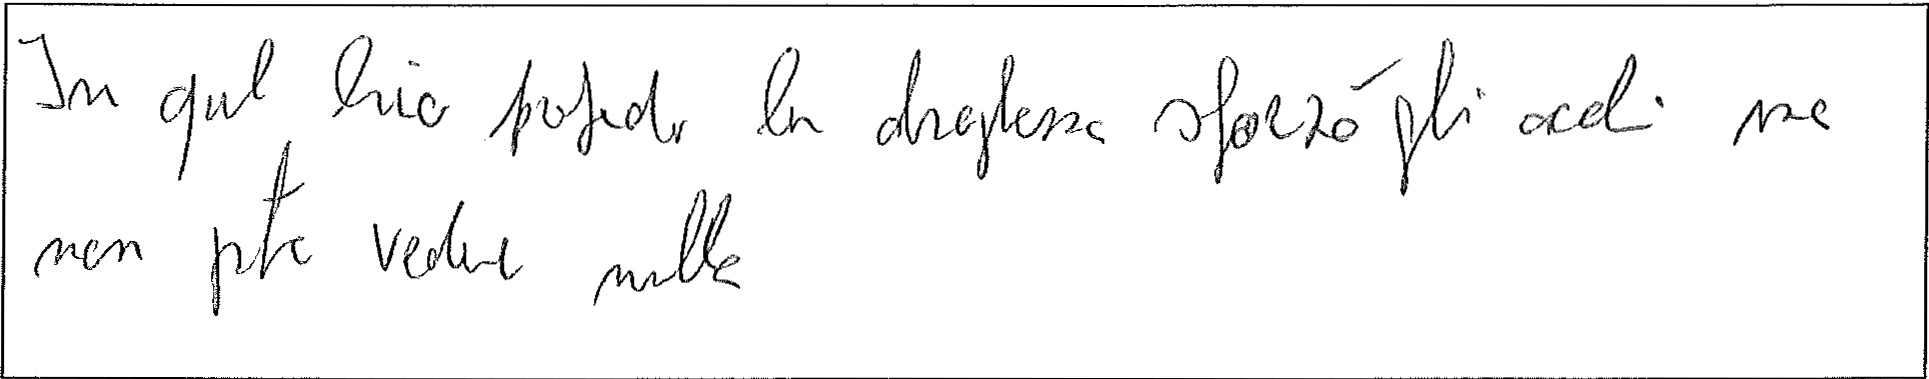 In quel buio profondo la dragessa sforzò gli occhi ma
non poté vedere nulla